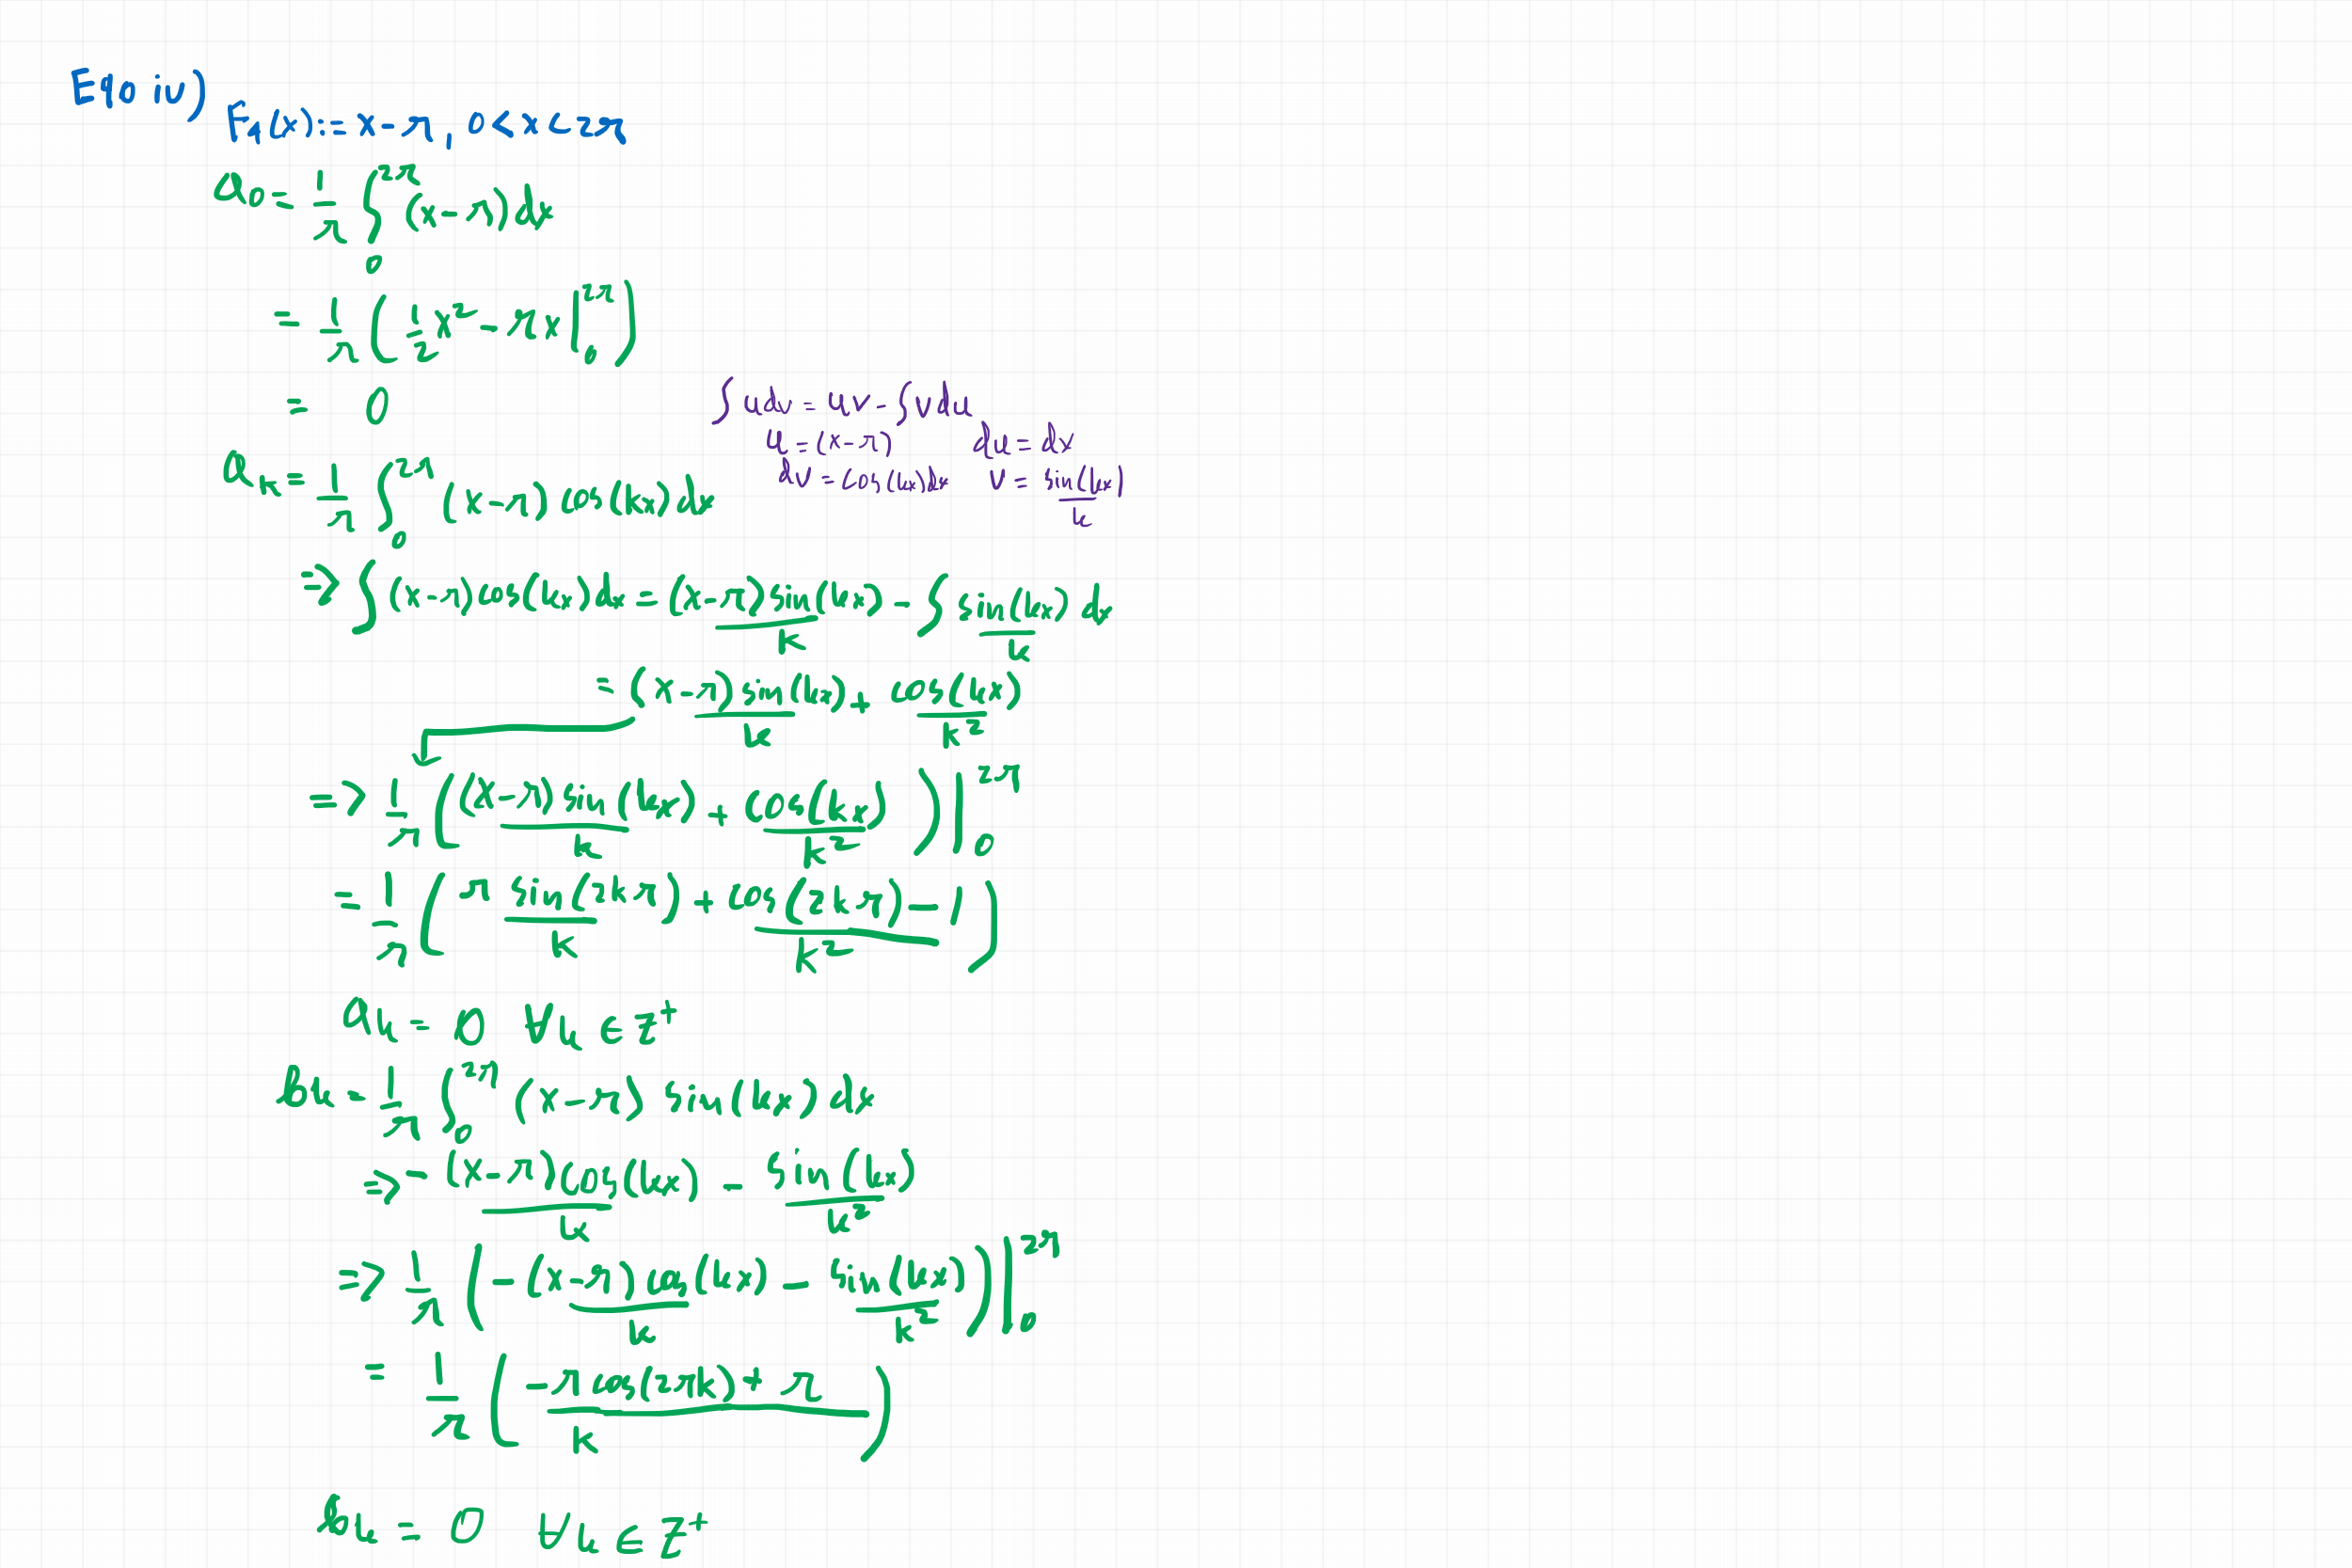 Eqo iv)
F₄(x) := x-π, 0<x<2π
a₀ = 1/π ∫₀^2π (x-π)dx
= 1/π ( 1/2 x² - πx |₀^2π )
= 0
∫udv = uv - ∫vdu
u = (x-π) du = dx
dv = cos(kx)dx v = sin(kx)/k
aₖ = 1/π ∫₀^2π (x-π)cos(kx)dx
=> ∫(x-π)cos(kx)dx = (x-π)sin(kx)/k - ∫ sin(kx)/k dx
= (x-π)sin(kx)/k + cos(kx)/k²
=> 1/π ( (x-π)sin(kx)/k + cos(kx)/k² ) |₀^2π
= 1/π ( π sin(2kπ)/k + (cos(2kπ)-1)/k² )
aₖ = 0 ∀k ∈ Z⁺
bₖ = 1/π ∫₀^2π (x-π) sin(kx) dx
=> -(x-π)cos(kx)/k - sin(kx)/k²
=> 1/π ( -(x-π)cos(kx)/k - sin(kx)/k² ) |₀^2π
= 1/π ( (-π cos(2πk) + π)/k )
bₖ = 0 ∀k ∈ Z⁺